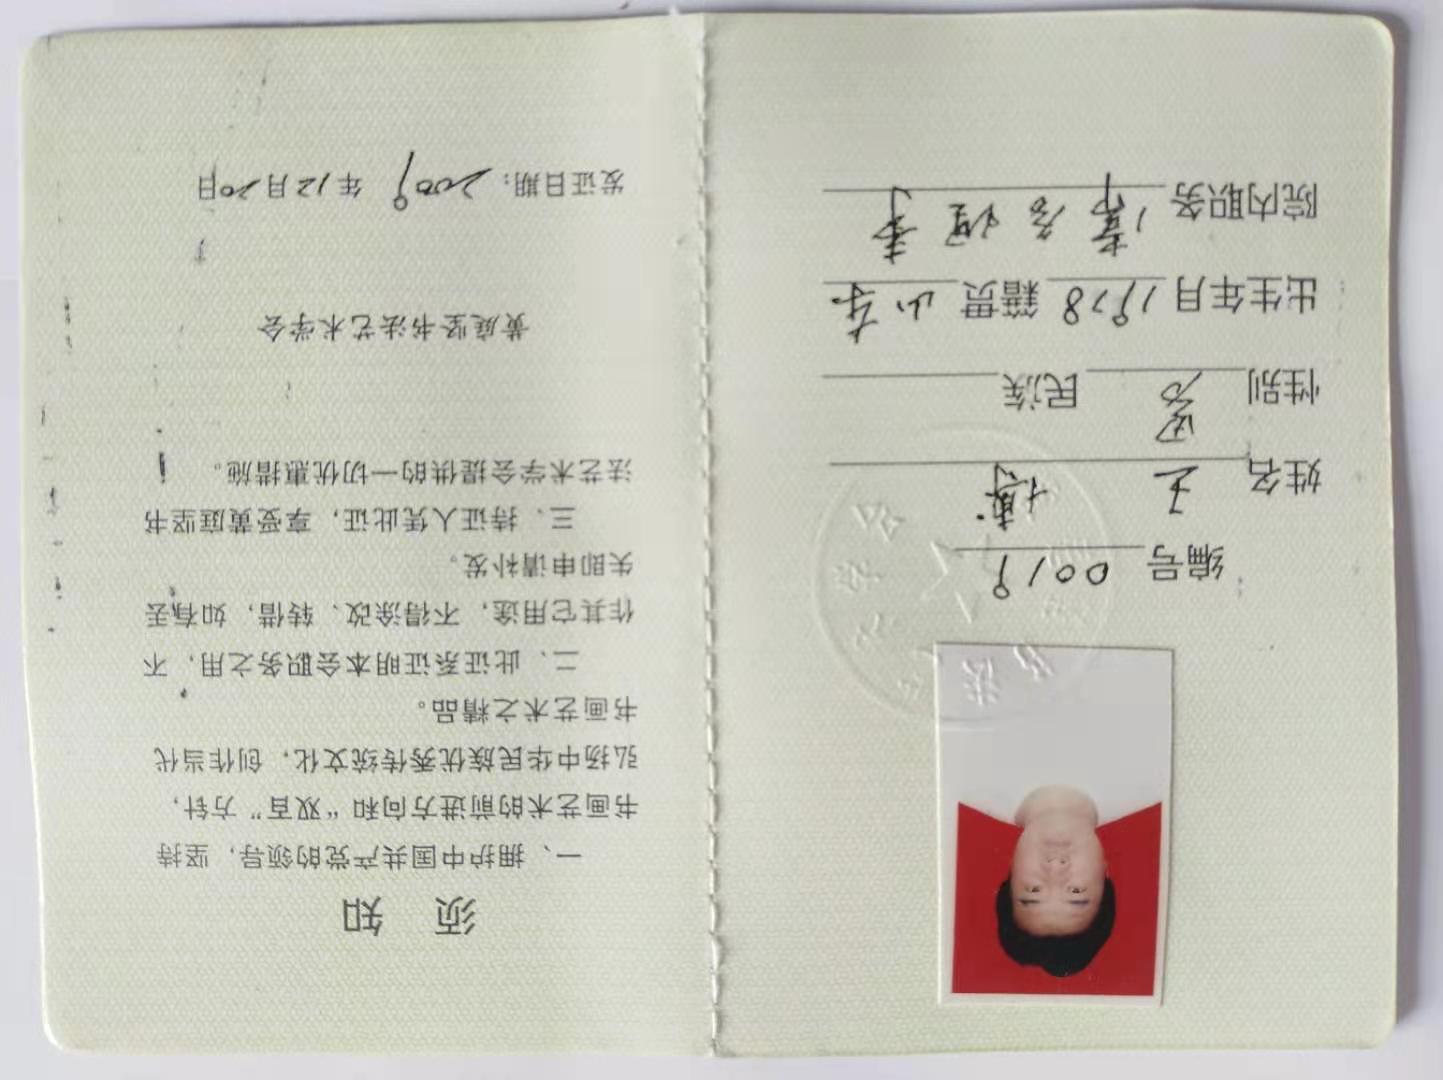 编号 0019
姓名 王博
性别 男 民族
出生年月 1978 籍贯 山东
院内职务 常务理事
须 知
一、拥护中国共产党的领导，坚持
书画艺术的前进方向和“双百”方针，
弘扬中华民族优秀传统文化，创作当代
书画艺术之精品。
二、此证系证明本会职务之用，不
作其它用途，不得涂改、转借，如有丢
失即申请补发。
三、持证人凭此证，享受黄庭坚书
法艺术学会提供的一切优惠措施。
黄庭坚书法艺术学会
发证日期：2009年12月20日